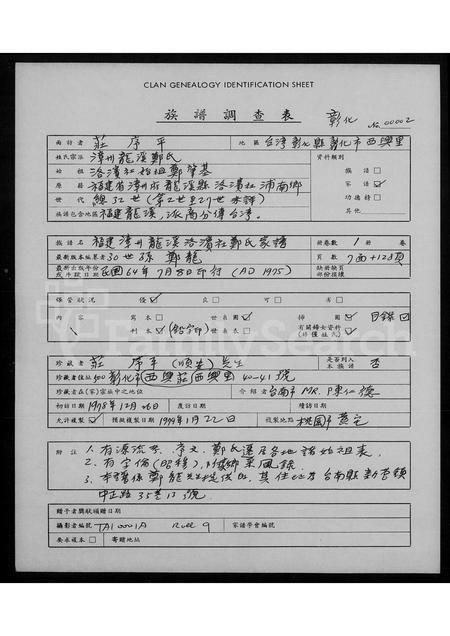 CLAN GENEALOGY IDENTIFICATION SHEET
族譜調查表 彰化 No. 00002
面訪者 莊序平 地區 台灣彰化縣彰化市西興里
姓氏宗派 漳州龍溪鄭氏 資料類別
始祖 洛濱社始祖鄭肇基 族譜
原籍 福建省漳州府龍溪縣洛濱社浦南鄉 家譜
世代 總32世(第2世至27世未詳) 功德榜
族譜包含地區 福建龍溪,派高分傳台灣。 其他
族譜名 福建漳州龍溪洛濱社鄭氏家譜 冊卷數 1 冊 卷
最新版本編纂者 30世孫 鄭龍 頁數 7面+128頁
最新出版年份或手鈔日期 民國64年7月8日印行 (AD 1975) 缺冊缺頁部份描續
保管狀況 優 良 可 劣
內容 寫本 世系圖 插圖 目錄
刊本 (鉛字印) 世系表 有關婦女資料(非僅姓氏)
珍藏者 莊序平 (順生) 先生 是否列入本族譜 否
珍藏者住址 500彰化市(西興莊)西興里 40-41號
珍藏者在(家)宗族中之地位 介紹者 台南市 MR. 陳仁德
初訪日期 1998年12月26日 度訪日期 續訪日期
允許複製 預擬複製日期 1999年1月22日 複製地點 桃園市
附註 1. 有源流序、序文、鄭氏遷居各地諸始祖表。
2. 有字倫(昭穆),
3. 本譜係鄭龍先生提供的,其住址為台南縣
中正路35巷13號。
贈予者獎狀頒贈日期
攝影者編號 TA10001A Roll 9 家譜學會編號
要求複本 寄贈地址
FamilySearch